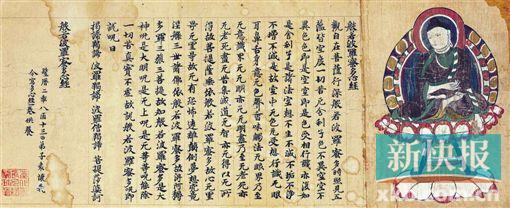 般若波羅蜜多心經
觀自在菩薩行深般若波羅蜜多時照見五
蘊皆空度一切苦厄舍利子色不異空空不
異色色即是空空即是色受想行識亦復如
是舍利子是諸法空相不生不滅不垢不淨
不增不減是故空中无色无受想行識无眼
耳鼻舌身意无色聲香味觸法无眼界乃至
无意識界无无明亦无无明盡乃至无老死亦
无老死盡无苦集滅道无智亦无得以无所
得故菩提薩埵依般若波羅蜜多故心无罣
礙无罣礙故无有恐怖遠離顛倒夢想究竟
涅槃三世諸佛依般若波羅蜜多故得阿耨
多羅三藐三菩提故知般若波羅蜜多是大
神呪是大明呪是无上呪是无等等呪能除
一切苦真實不虛故說般若波羅蜜多呪即
說呪曰
揭諦揭諦 波羅揭諦 波羅僧揭諦 菩提薩婆訶
般若波羅蜜多心經
聖曆二年八月十三日弟子
令寫多心經一卷供養
新快报